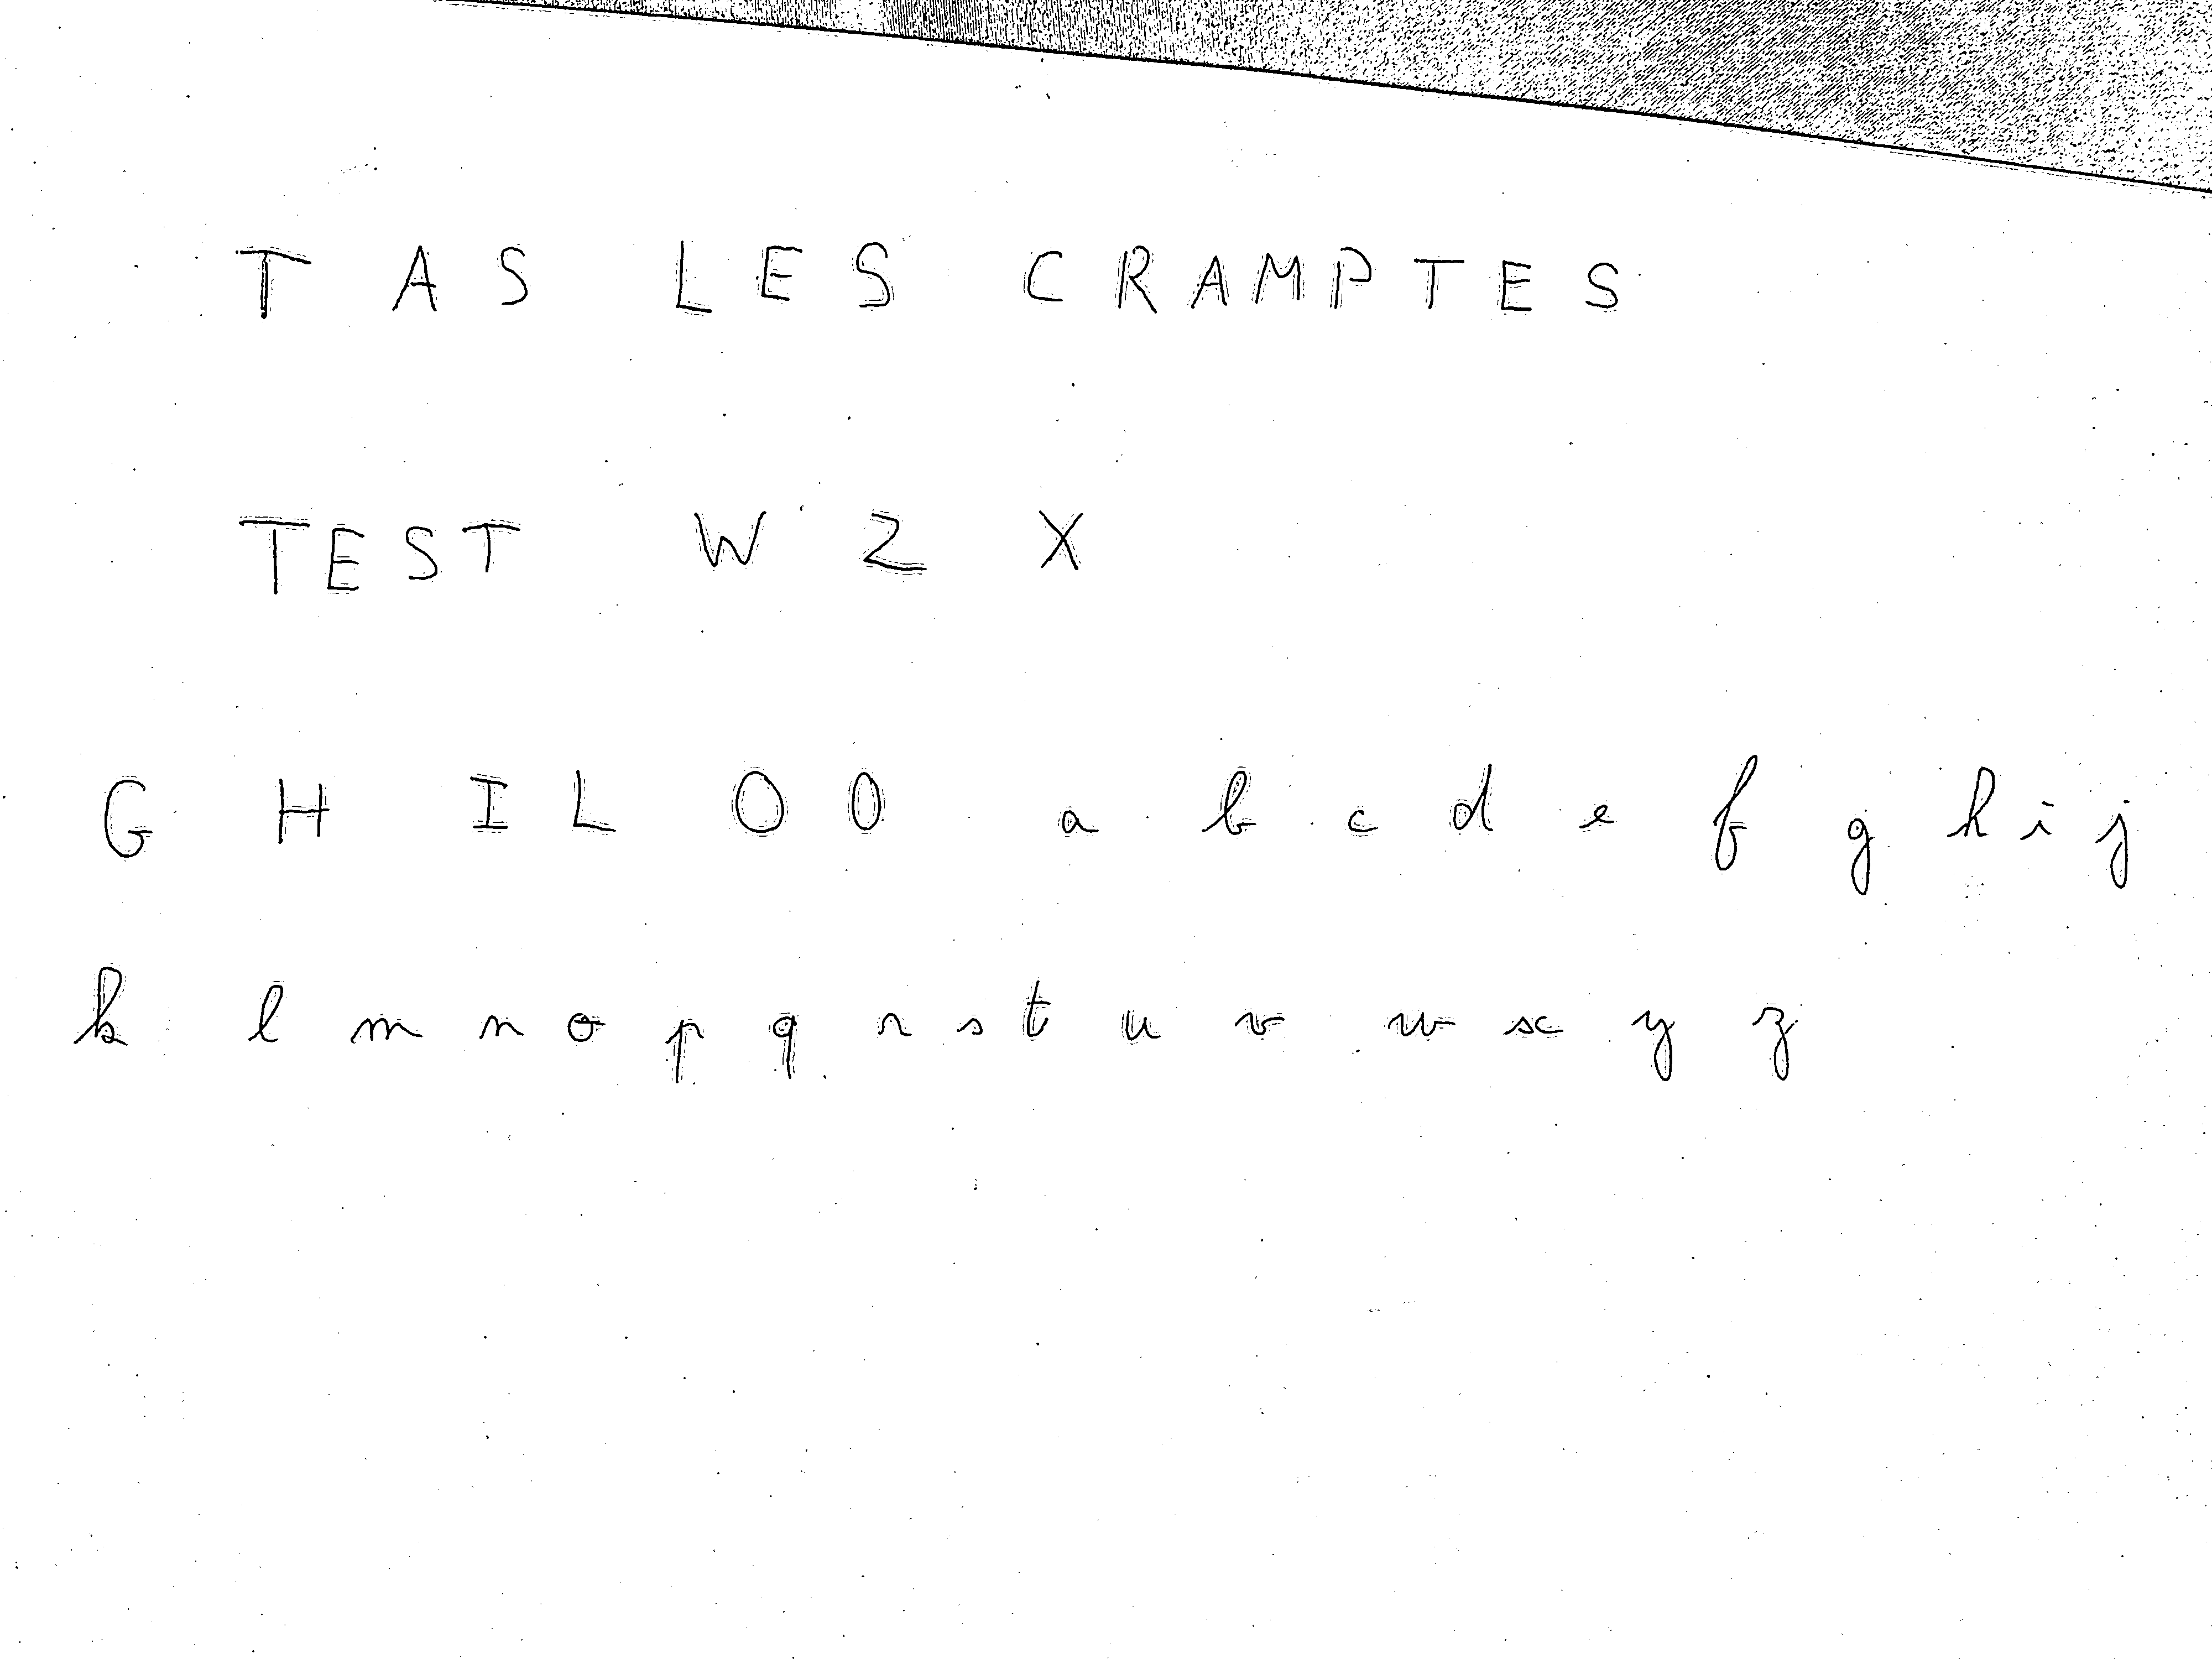 TAS LES CRAMPTES
TEST W Z X
G H I L O O a b c d e f g h i j
k l m n o p q r s t u v w x y z